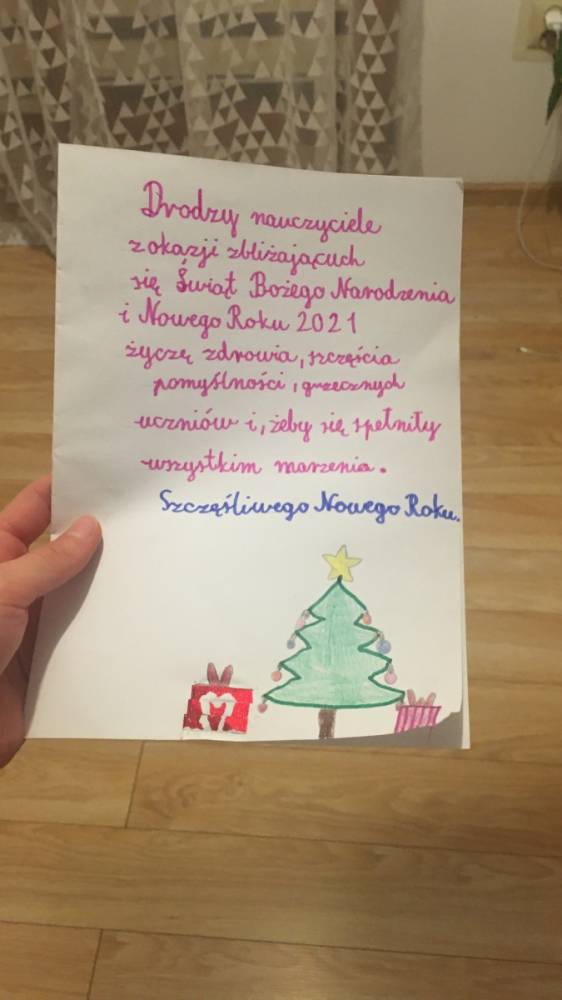 Drodzy nauczyciele
z okazji zbliżających
się Świąt Bożego Narodzenia
i Nowego Roku 2021
życzę zdrowia, szczęścia
pomyślności, grzecznych
uczniów i, żeby się spełniły
wszystkim marzenia.
Szczęśliwego Nowego Roku.
M